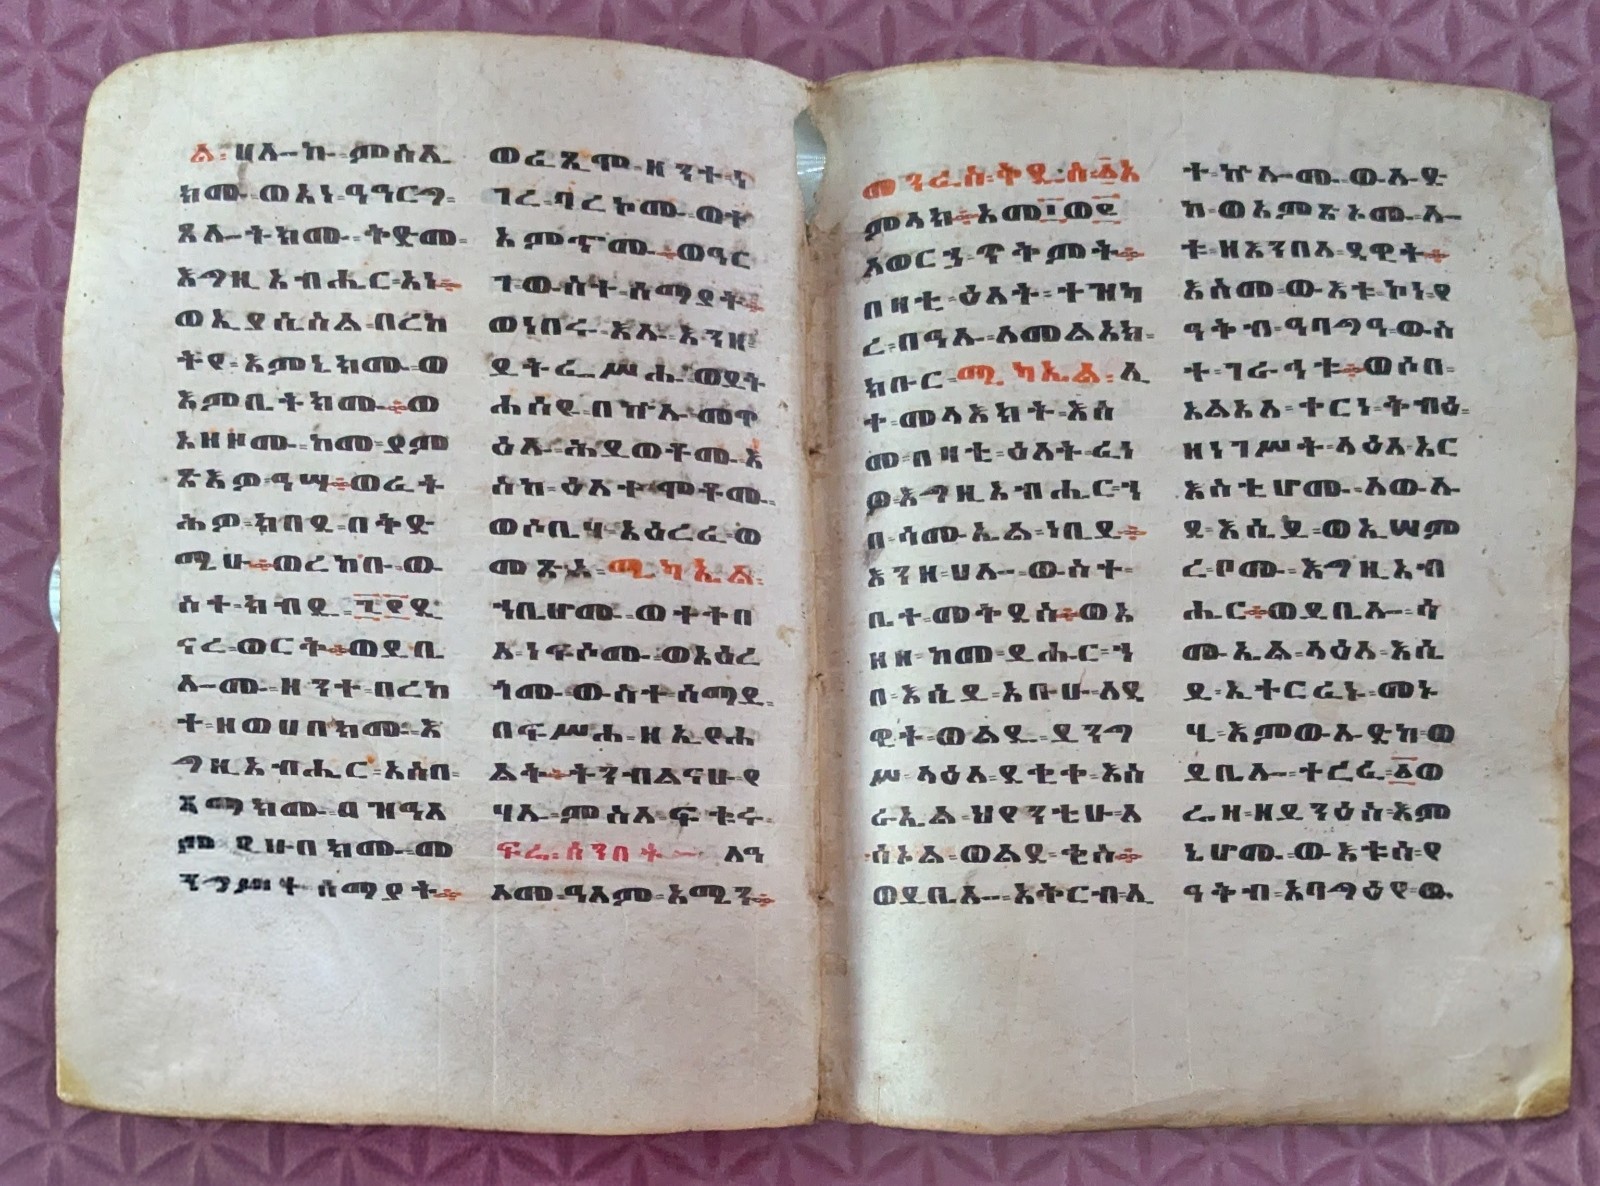 ል፡ሀሎ፡ክ፡ምስሌ
ክሙ፡ወአነ፡ዓዓርግ፡
ጸሎትክሙ፡ቅድመ፡
እግዚአብሔር፡አነ፨
ወኢያሴስል፡በረከ
ትየ፡እምኔክሙ፡ወ
እምቤትክሙ፨ወ
አዘዞሙ፡ከመ፡ያም
ጽእዎ፡ዓሣ፨ወፈት
ሕዎ፡ክበዱ፡በቅድ
ሜሁ፨ወረከቡ፡ው
ስተ፡ክብዱ፡፫፻ዲ
ናረ፡ወርቅ፨ወይቤ
ሎሙ፡ዝንተ፡በረከ
ተ፡ዘወሀበክሙ፡እ
ግዚአብሔር፡አስበ፡
ጻማክሙ፡በዝዓለ
ም፡ይሁበክሙ፡መ
ንግሥተ፡ሰማያት፨
ወፈጺሞ፡ዘንተ፡ነ
ገረ፡ባረኮሙ፡ወቶ
አምኖሙ፨ወዓር
ገ፡ውስተ፡ሰማያት፨
ወነበሩ፡እሉ፡እንዘ፡
ይትፌሥሑ፡ወይት
ሐሰዩ፡በኵሉ፡መዋ
ዕለ፡ሕይወቶሙ፡እ
ስከ፡ዕለተ፡ሞቶሙ፡
ወሶቤሃ፡አዕረፈ፡ወ
መጽአ፡ሚካኤል፡
ኀቤሆሙ፡ወተቀበ
ለ፡ነፍሶሙ፡ወአዕረ
ጎሙ፡ውስተ፡ሰማይ፡
በፍሥሐ፡ዘኢየሐ
ልቅ፨ትንብልናሁ፡የ
ሃሉ፡ምስለ፡ፍቁሩ፡
ፍሬ፡ሰንበት፡ ለዓ
ለመ፡ዓለም፡አሜን፨
መንፈስ፡ቅዱስ፡፩አ
ምላክ፨አመ፲ወ፪
ለወርኀ፡ጥቅምት፨
በዛቲ፡ዕለት፡ተዝካ
ረ፡በዓሉ፡ለመልአክ፡
ክቡር፡ሚካኤል፡ሊ
ቀ፡መላእክት፡እስ
መ፡በዛቲ፡ዕለት፡ፈነ
ዎ፡እግዚአብሔር፡ኀ
በ፡ሳሙኤል፡ነቢይ፨
እንዘ፡ሀሎ፡ውስተ፡
ቤተ፡መቅደስ፨ወአ
ዘዘ፡ከመ፡ይሑር፡ኀ
በ፡እሴይ፡አቡሁ፡ለዳ
ዊት፡ወልዱ፡ይንግ
ሥ፡ላዕለ፡ደቂቀ፡እስ
ራኤል፡ህየንቲሁ፡ለ
ሰኦል፡ወልደ፡ቂስ፨
ወይቤሎ፡አቅርብ፡ሊ
ተ፡ኵሎሙ፡ውሉድ
ከ፡ወአምጽኦሙ፡ሎ
ቱ፡ዘእንበለ፡ዳዊት፨
እስመ፡ውእቱ፡ኮነ፡የ
ዓቅብ፡ዓባግዓ፡ውስ
ተ፡ገራዓቱ፨ወሶበ፡
አልአለ፡ተርነ፡ቅብዕ፡
ዘነገሥት፡ላዕለ፡አር
እስቲሆሙ፡ለውሉ
ደ፡እሴይ፡ወኢሠም
ረቦሙ፡እግዚአብ
ሔር፨ወይቤሎ፡ሳ
ሙኤል፡ላዕለ፡እሴ
ይ፡ኢተርፈኑ፡መኑ
ሂ፡እምውሉድከ፡ወ
ይቤሎ፡ተረፈ፡፩ወ
ሬዛ፡ዘይንዕስ፡እም
ኔሆሙ፡ውእቱሰ፡የ
ዓቅብ፡አባግዕየ፡ወ